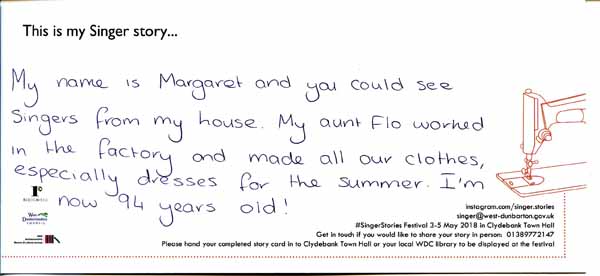 This is my Singer story...
My name is Margaret and you could see
Singers from my house. My aunt Flo worked
in the factory and made all our clothes,
especially dresses for the summer. I'm
now 94 years old!
instagram.com/singer.stories
singer@west-dunbarton.gov.uk
#SingerStories Festival 3-5 May 2018 in Clydebank Town Hall
Get in touch if you would like to share your story in person: 01389772147
Please hand your completed story card in to Clydebank Town Hall or your local WDC library to be displayed at the festival